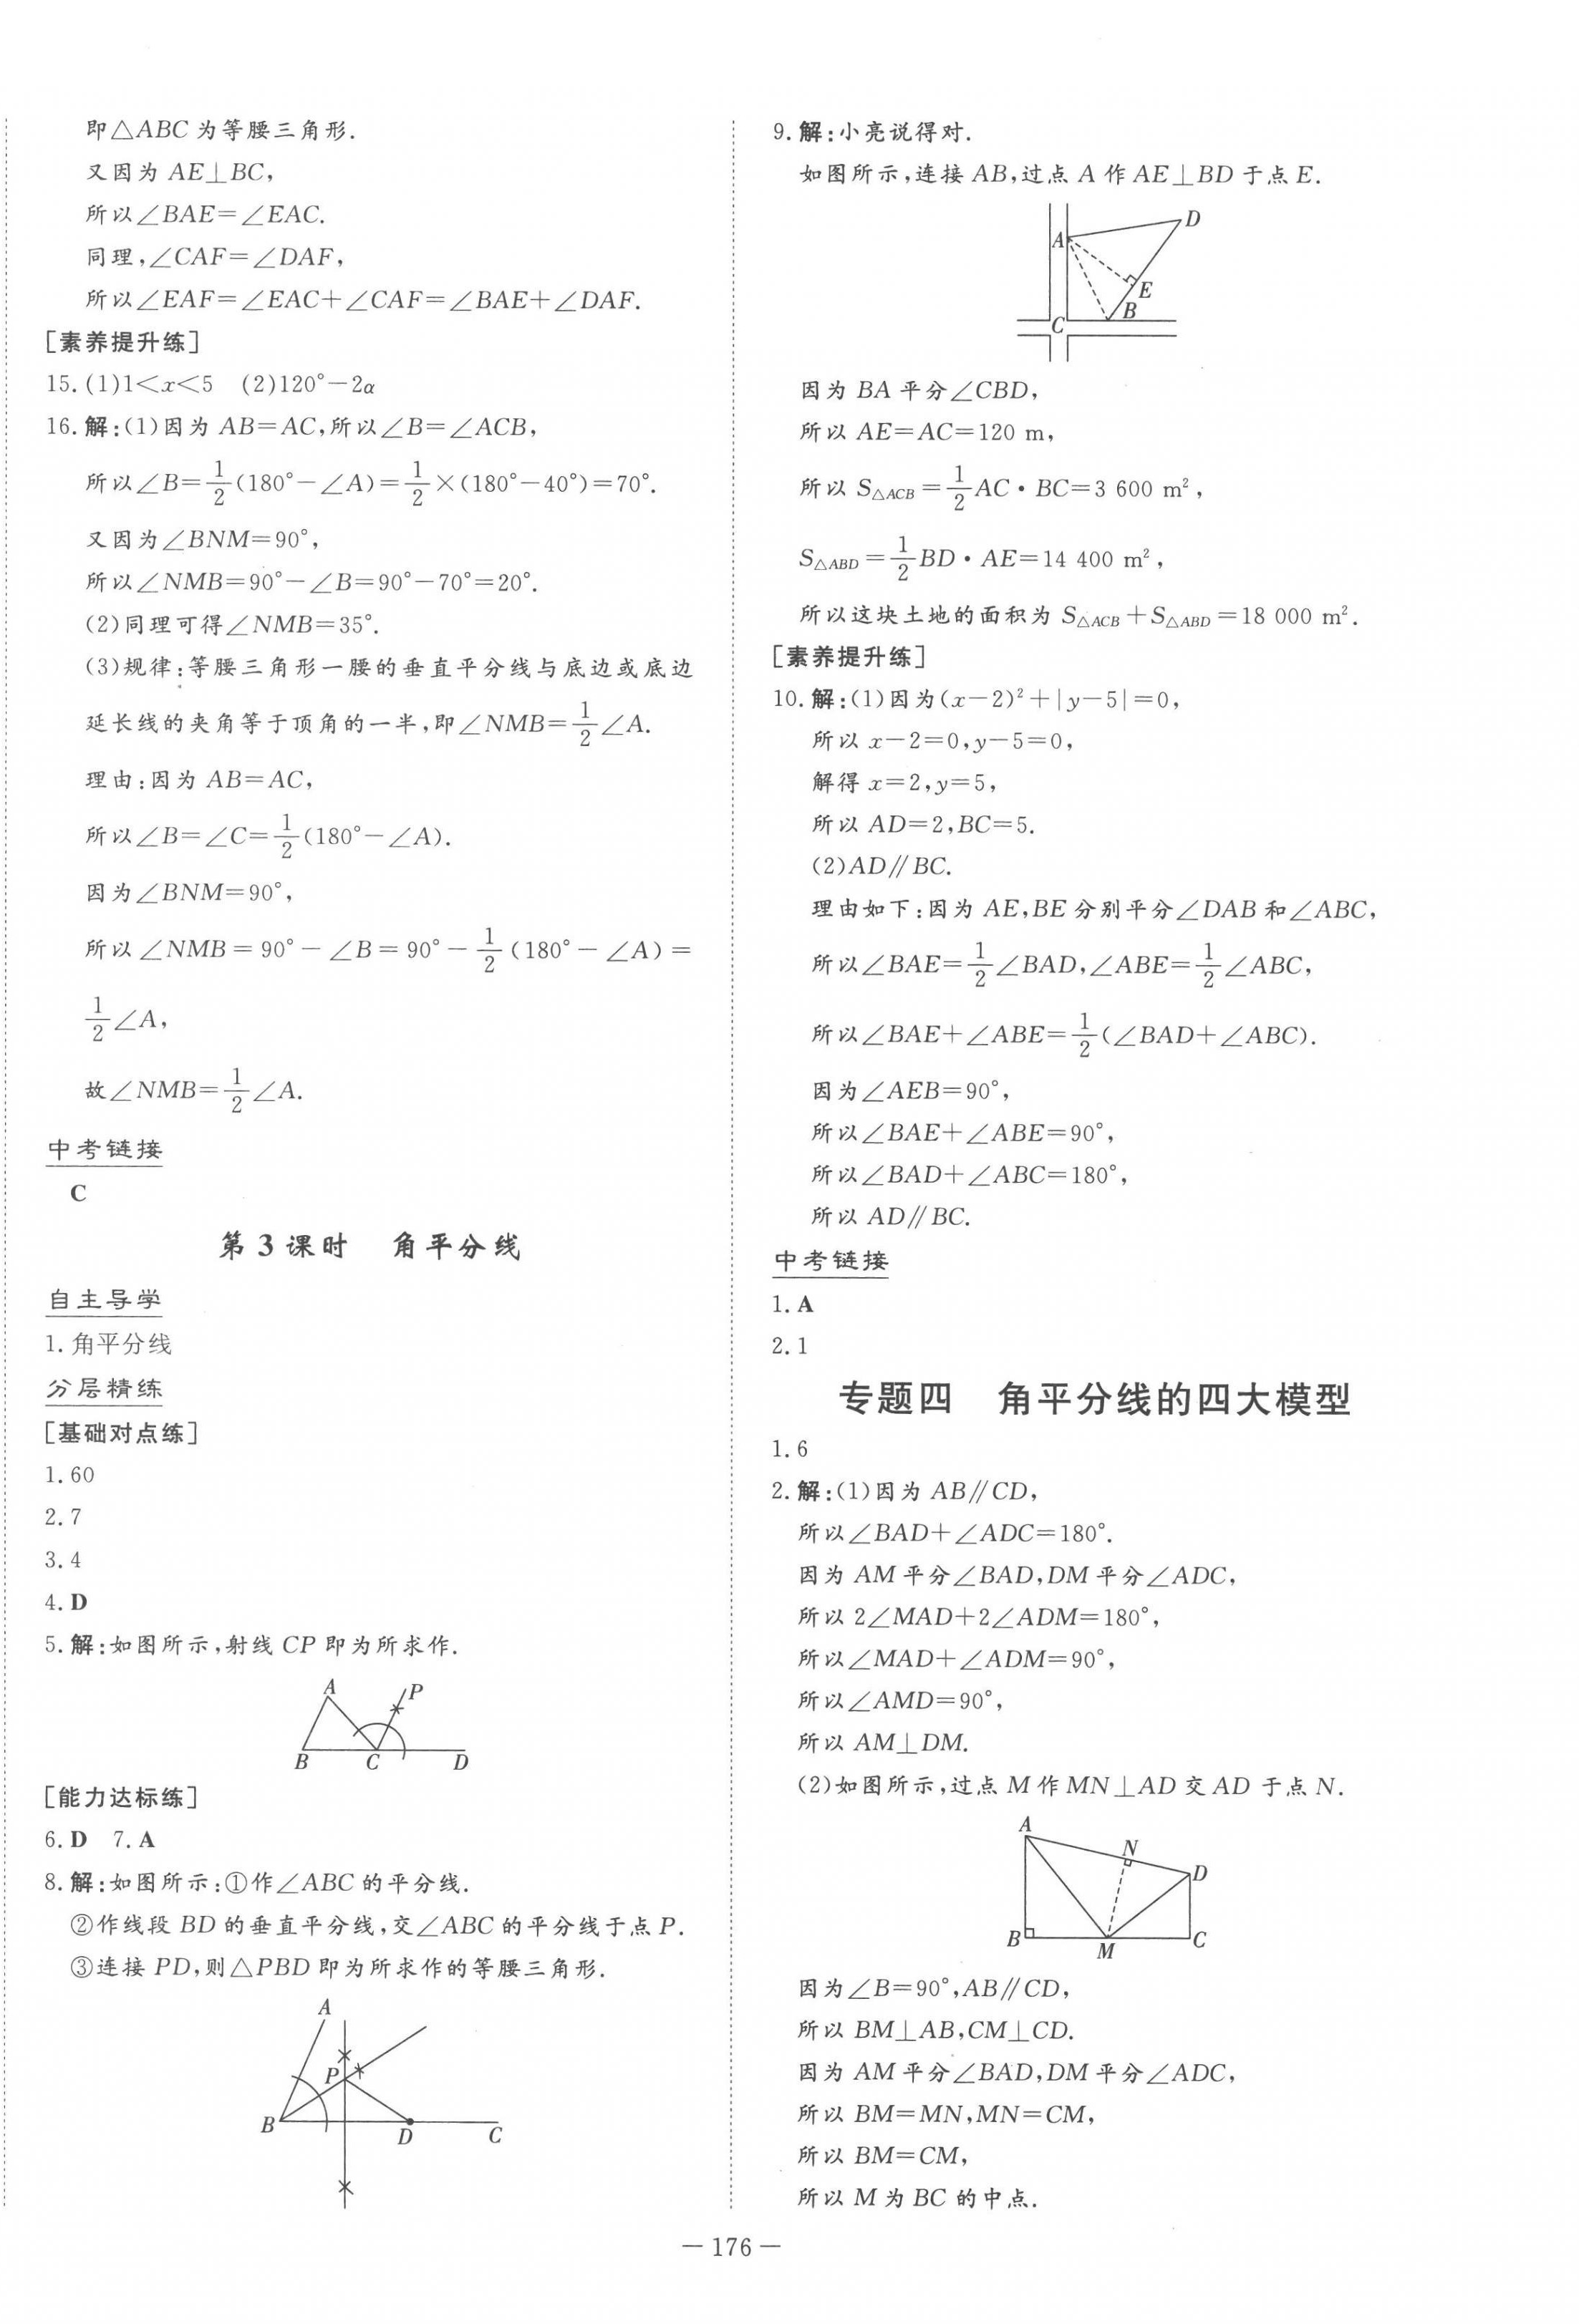 即△ABC为等腰三角形.
又因为 AE⊥BC,
所以∠BAE=∠EAC.
同理,∠CAF=∠DAF,
所以∠EAF=∠EAC+∠CAF=∠BAE+∠DAF.
[素养提升练]
15.(1)1<x<5 (2)120°-2α
16.解:(1)因为 AB=AC,所以∠B=∠ACB,
所以∠B=1/2(180°-∠A)=1/2×(180°-40°)=70°.
又因为∠BNM=90°,
所以∠NMB=90°-∠B=90°-70°=20°.
(2)同理可得∠NMB=35°.
(3)规律:等腰三角形一腰的垂直平分线与底边或底边
延长线的夹角等于顶角的一半,即∠NMB=1/2∠A.
理由:因为 AB=AC,
所以∠B=∠C=1/2(180°-∠A).
因为∠BNM=90°,
所以∠NMB=90°-∠B=90°-1/2(180°-∠A)=
1/2∠A,
故∠NMB=1/2∠A.
中考链接
C
第3课时 角平分线
自主导学
1.角平分线
分层精练
[基础对点练]
1.60
2.7
3.4
4.D
5.解:如图所示,射线 CP 即为所求作.
A
P
B
C
D
[能力达标练]
6.D 7.A
8.解:如图所示:①作∠ABC的平分线.
②作线段 BD 的垂直平分线,交∠ABC的平分线于点 P.
③连接 PD,则△PBD即为所求作的等腰三角形.
A
P
B
D
C
9.解:小亮说得对.
如图所示,连接 AB,过点 A 作 AE⊥BD 于点 E.
D
A
E
B
C
因为 BA 平分∠CBD,
所以 AE=AC=120 m,
所以 S△ACB=1/2AC·BC=3 600 m²,
S△ABD=1/2BD·AE=14 400 m²,
所以这块土地的面积为 S△ACB+S△ABD=18 000 m².
[素养提升练]
10.解:(1)因为(x-2)²+|y-5|=0,
所以 x-2=0,y-5=0,
解得 x=2,y=5,
所以 AD=2,BC=5.
(2)AD∥BC.
理由如下:因为 AE,BE 分别平分∠DAB 和∠ABC,
所以∠BAE=1/2∠BAD,∠ABE=1/2∠ABC,
所以∠BAE+∠ABE=1/2(∠BAD+∠ABC).
因为∠AEB=90°,
所以∠BAE+∠ABE=90°,
所以∠BAD+∠ABC=180°,
所以 AD∥BC.
中考链接
1.A
2.1
专题四 角平分线的四大模型
1.6
2.解:(1)因为 AB∥CD,
所以∠BAD+∠ADC=180°.
因为 AM 平分∠BAD,DM 平分∠ADC,
所以 2∠MAD+2∠ADM=180°,
所以∠MAD+∠ADM=90°,
所以∠AMD=90°,
所以 AM⊥DM.
(2)如图所示,过点 M 作 MN⊥AD 交 AD 于点 N.
A
N
D
B
M
C
因为∠B=90°,AB∥CD,
所以 BM⊥AB,CM⊥CD.
因为 AM 平分∠BAD,DM 平分∠ADC,
所以 BM=MN,MN=CM,
所以 BM=CM,
所以 M 为 BC 的中点.
— 176 —